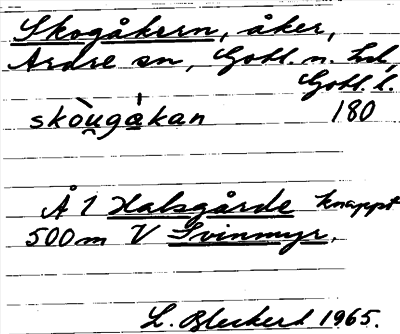 Skogåkern, åker,
Ardre sn, Gotl. n. hd,
Gotl. l.
skòu̯gǡkan 180
Å 1 Halsgårde knappt
500 m V Svinmyr.
L. Bleckert 1965.